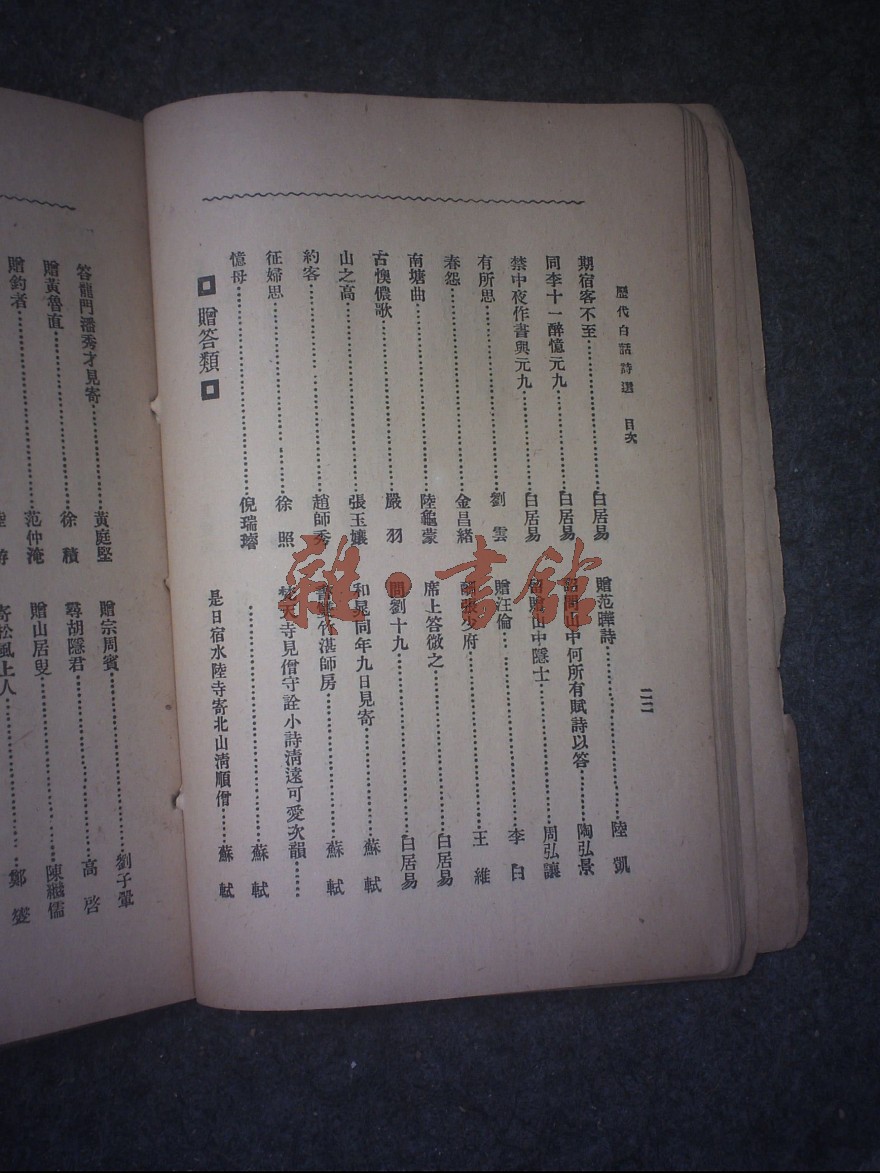 歷代白話詩選　目次
二二
期宿客不至……白居易
同李十一醉憶元九……白居易
禁中夜作書與元九……白居易
有所思……劉　雲
春怨……金昌緒
南塘曲……陸龜蒙
古懊儂歌……嚴　羽
山之高……張玉孃
約客……趙師秀
征婦思……徐　照
憶母……倪瑞璿
贈答類
贈范曄詩……陸　凱
詔問山中何所有賦詩以答……陶弘景
留贈山中隱士……周弘讓
贈汪倫……李　白
酬張少府……王　維
席上答微之……白居易
問劉十九……白居易
和晁同年九日見寄……蘇　軾
竹湛師房……蘇　軾
梵天寺見僧守詮小詩清遠可愛次韻……
……蘇　軾
是日宿水陸寺寄北山清順僧……蘇　軾
答龍門潘秀才見寄……黃庭堅
贈黃魯直……徐　積
贈釣者……范仲淹
游
贈宗周賓……劉子翬
尋胡隱君……高　啓
贈山居叟……陳繼儒
寄松風上人……鄭　燮
雜·書館